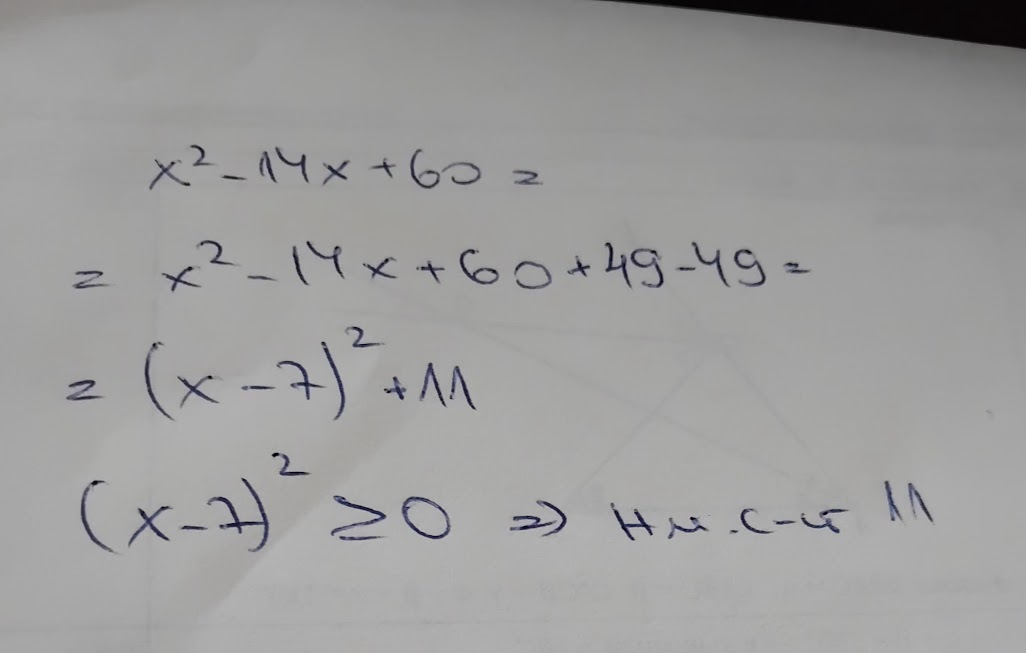 x² - 14x + 60 =
= x² - 14x + 60 + 49 - 49 =
= (x - 7)² + 11
(x - 7)² ≥ 0 => Нм. с-ст 11